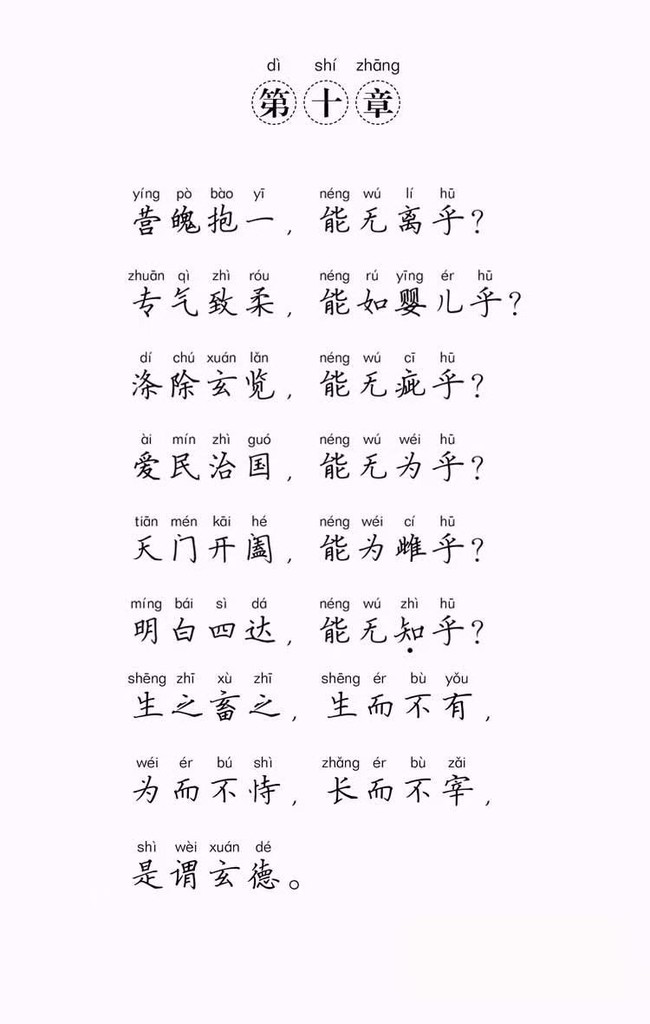 dì shí zhāng
第十章
yíng pò bào yī néng wú lí hū
营魄抱一，能无离乎？
zhuān qì zhì róu néng rú yīng ér hū
专气致柔，能如婴儿乎？
dí chú xuán lǎn néng wú cī hū
涤除玄览，能无疵乎？
ài mín zhì guó néng wú wéi hū
爱民治国，能无为乎？
tiān mén kāi hé néng wéi cí hū
天门开阖，能为雌乎？
míng bái sì dá néng wú zhì hū
明白四达，能无知乎？
shēng zhī xù zhī shēng ér bù yǒu
生之畜之，生而不有，
wéi ér bú shì zhǎng ér bù zǎi
为而不恃，长而不宰，
shì wèi xuán dé
是谓玄德。